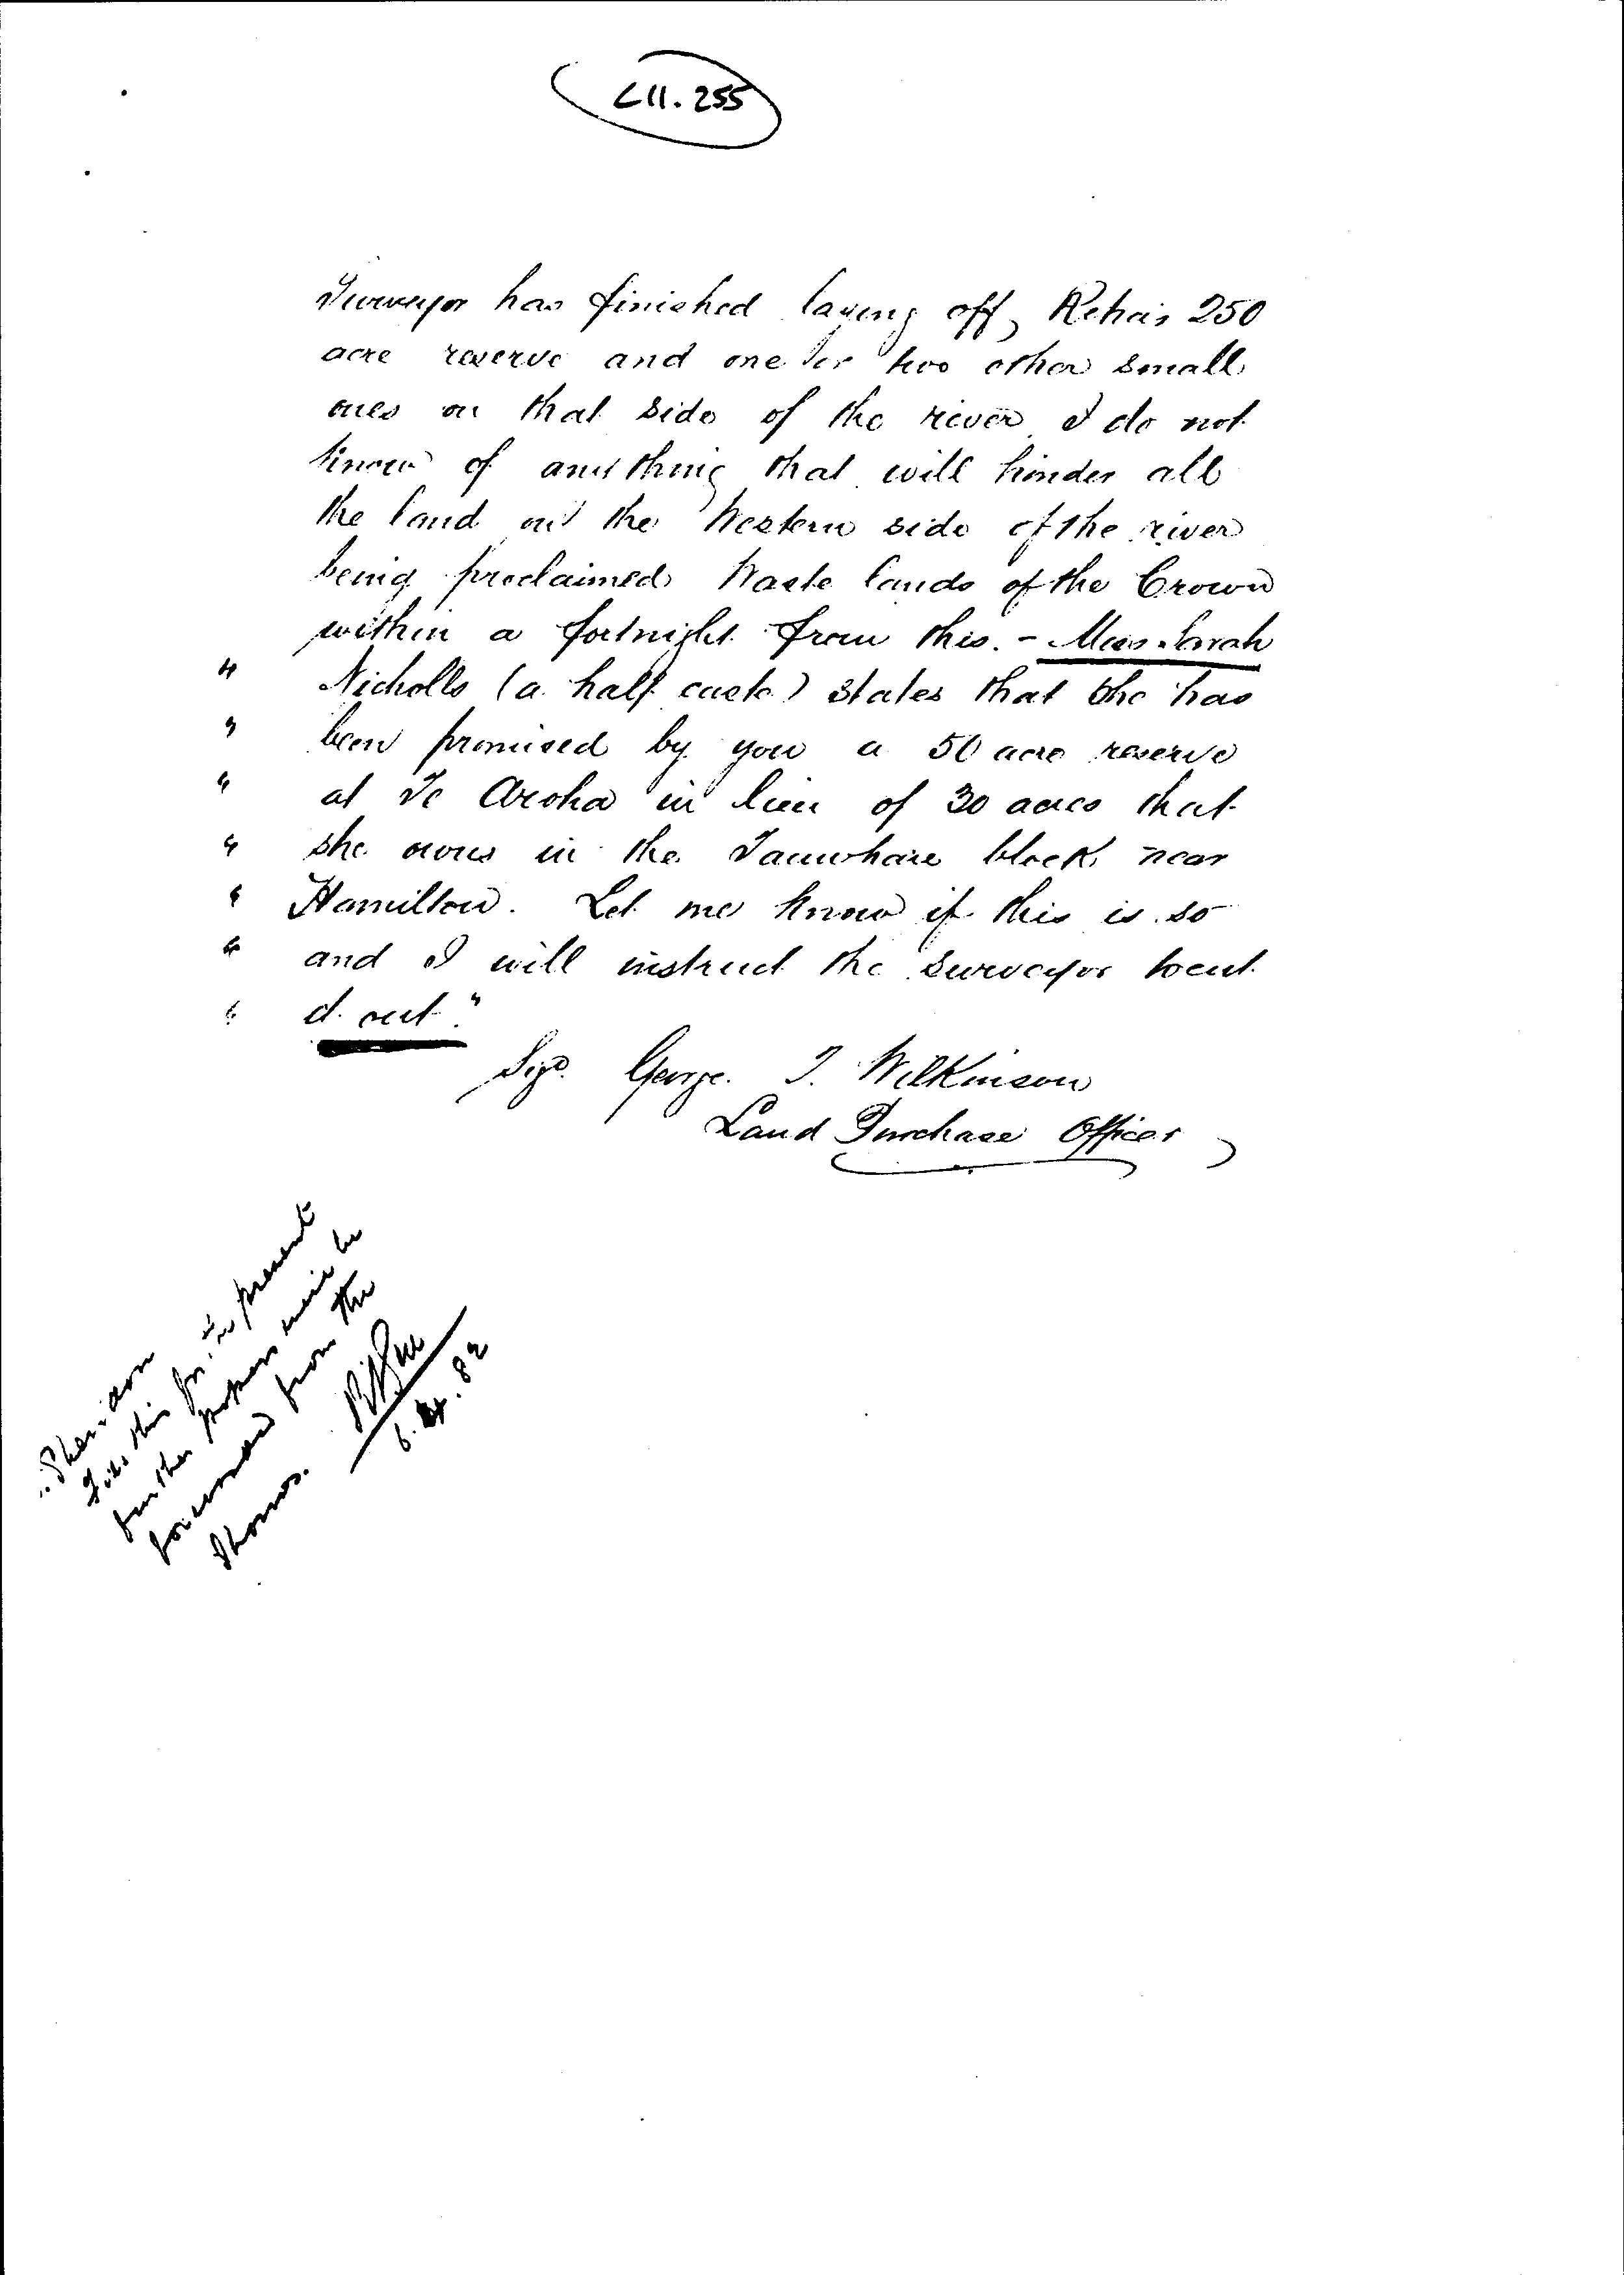 C11.255
Surveyor has finished laying off, Reha's 250
acre reserve and one or two other small
ones on that side of the river I do not
know of anything that will hinder all
the land on the Western side of the river
being proclaimed Waste lands of the Crown
within a fortnight from this. - Miss Sarah
" Nicholls (a half caste) states that she has
" been promised by you a 50 acre reserve
" at Te Aroha in lieu of 30 acres that
" she owns in the Tauwhare block near
" Hamilton. Let me know if this is so
" and I will instruct the surveyor to cut
" it out."
Sigd. George. T. Wilkinson
Land Purchase Officer
Sheridan
File this for the present
further papers will be
forwarded from the
Thames.
6. 82